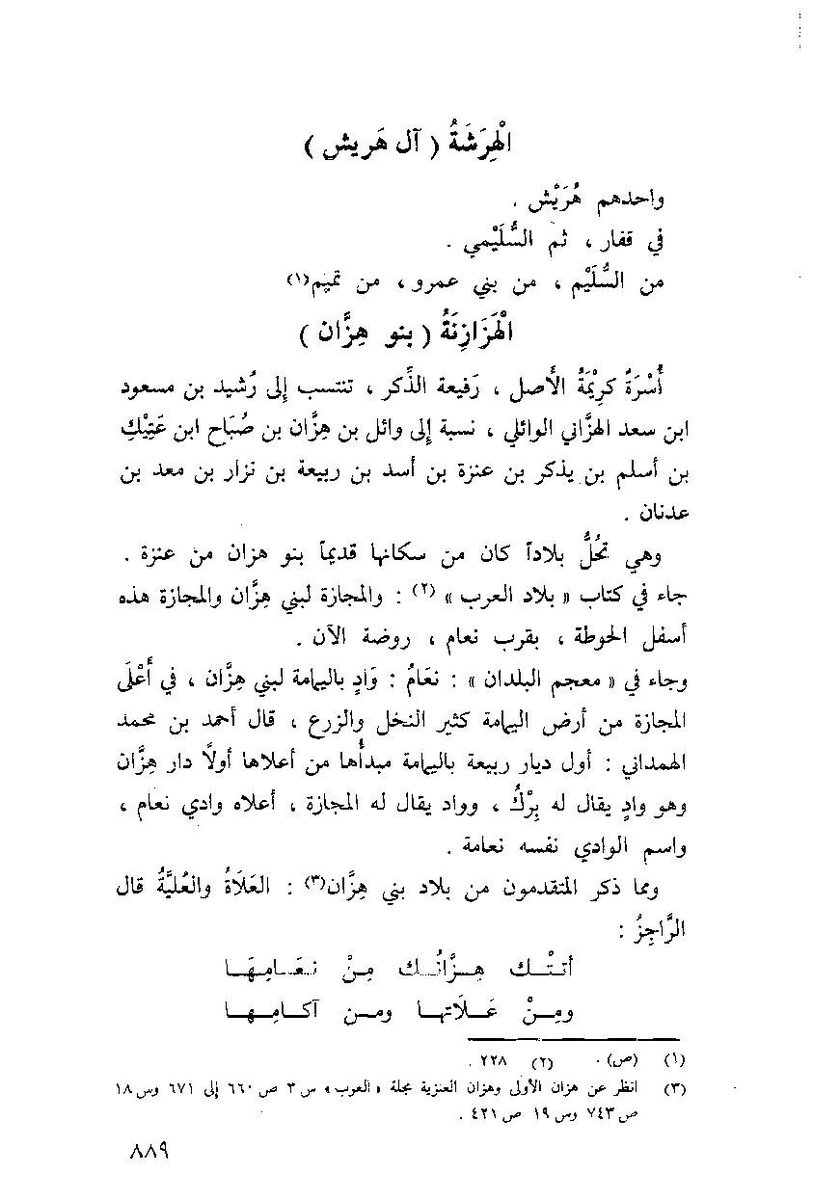 الْهِرَشَةُ ( آل هَريش )
واحدهم هُرَيْش .
في قفار ، ثم السُّلَيْمي .
من السُّلَيْم ، من بني عمرو ، من تميم(١)
الْهَزَازِنَةُ ( بنو هِزَّان )
أُسْرَةٌ كرِيْمَةُ الأَصل ، رَفيعة الذِّكر ، تنتسب إلى رُشيد بن مسعود
ابن سعد الهزَّاني الوائلي ، نسبة إلى وائل بن هِزَّان بن صُبَاح ابن عَتِيْكِ
بن أسلم بن يذكر بن عنزة بن أسد بن ربيعة بن نزار بن معد بن
عدنان .
وهي تَحُلُّ بلاداً كان من سكانها قديماً بنو هزان من عنزة .
جاء في كتاب « بلاد العرب » (٢) : والمجازة لبني هِزَّان والمجازة هذه
أسفل الحوطة ، بقرب نعام ، روضة الآن .
وجاء في « معجم البلدان » : نعَامُ : وَادٍ باليمامة لبني هِزَّان ، في أَعْلَى
المجازة من أرض اليمامة كثير النخل والزرع ، قال أحمد بن محمد
الهمداني : أول ديار ربيعة باليمامة مبدأُها من أعلاها أولًا دار هِزَّان
وهو وادٍ يقال له بِرْكُ ، وواد يقال له المجازة ، أعلاه وادي نعام ،
واسم الوادي نفسه نعامة .
ومما ذكر المتقدمون من بلاد بني هِزَّان(٣) : العَلَاةُ والعُليَّةُ قال
الرَّاجِزُ :
أتتْـك هِـزَّانُـك مِنْ نعَـامِـهَـا
ومِـنْ عَـلَاتهـا ومـن آكـامِـهـا
(١) (ص) . (٢) ٢٢٨ .
(٣) انظر عن هزان الأولى وهزان العنزية مجلة « العرب » س ٣ ص ٦٦٠ إلى ٦٧١ وس ١٨
ص ٧٤٣ وس ١٩ ص ٤٢١ .
٨٨٩